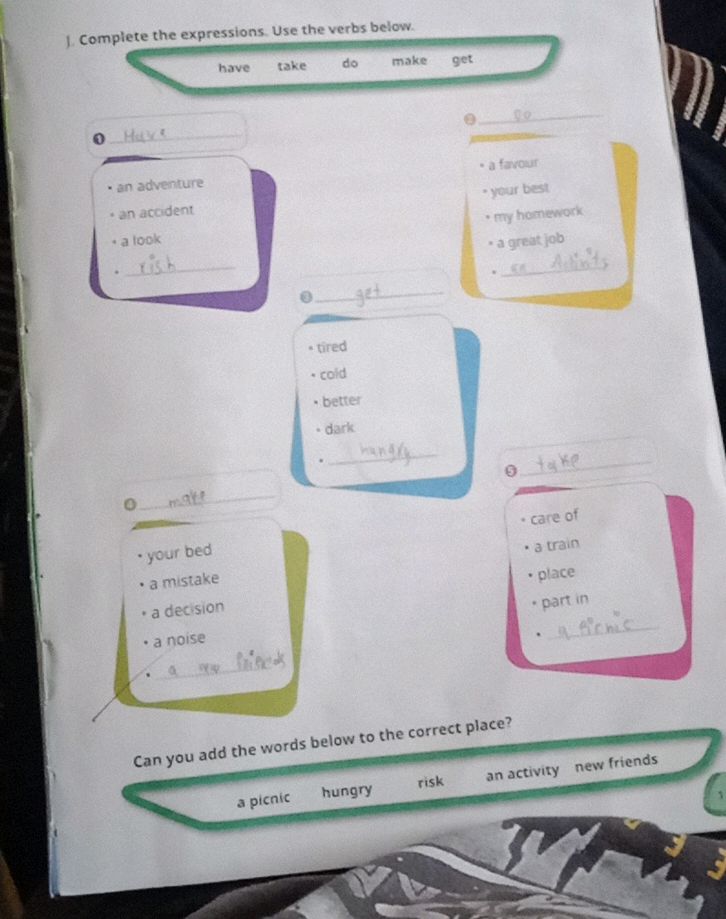 J. Complete the expressions. Use the verbs below.
have take do make get
1 Have
• an adventure
• an accident
• a look
• risk
2 Do
• a favour
• your best
• my homework
• a great job
• an
3 get
• tired
• cold
• better
• dark
• hungry
4 make
• your bed
• a mistake
• a decision
• a noise
• a new friends
5 take
• care of
• a train
• place
• part in
• a picnic
Can you add the words below to the correct place?
a picnic hungry risk an activity new friends